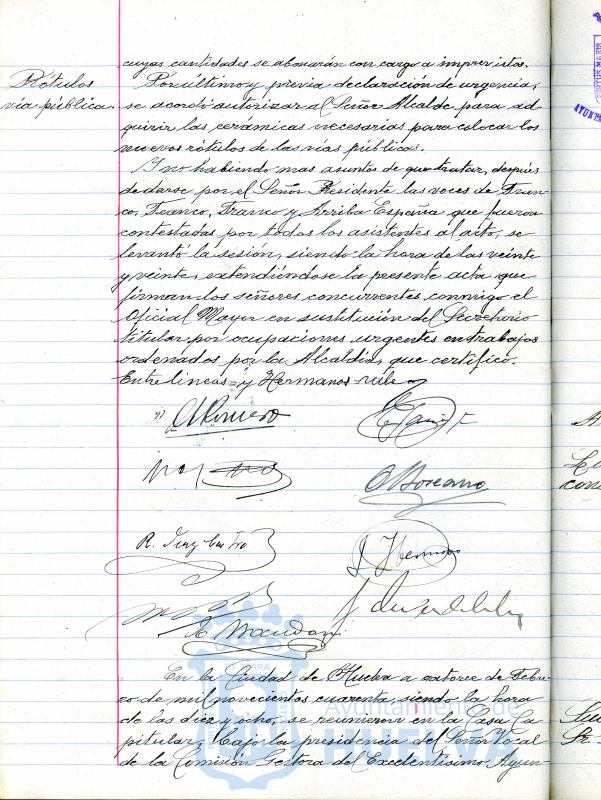 Rótulos
vía pública.
cuyas cantidades se abonarán con cargo a imprevistos.
Por último y previa declaración de urgencia,
se acordó autorizar al Señor Alcalde para ad
quirir las cerámicas necesarias para colocar los
nuevos rótulos de las vías públicas.
Y no habiendo mas asuntos de que tratar, después
de darse por el Señor Presidente las voces de Fran
co, Franco, Franco y Arriba España que fueron
contestadas por todos los asistentes al acto, se
levantó la sesión, siendo la hora de las veinte
y veinte, extendiéndose la presente acta que
firman los señores concurrentes conmigo el
Oficial Mayor en sustitución del Secretario
titular por ocupaciones urgentes en trabajos
ordenados por la Alcaldía, que certifico.
Entre lineas = y Hermanos = vale
A Romero
R. Diaz
J. Hermoso
En la Ciudad de Huelva a catorce de Febre
ro de mil novecientos cuarenta, siendo la hora
de las diez y ocho, se reunieron en la Casa Ca
pitular, bajo la presidencia del Señor Vocal
de la Comisión Gestora del Excelentísimo Ayun-
Ayuntamiento de
HUELVA